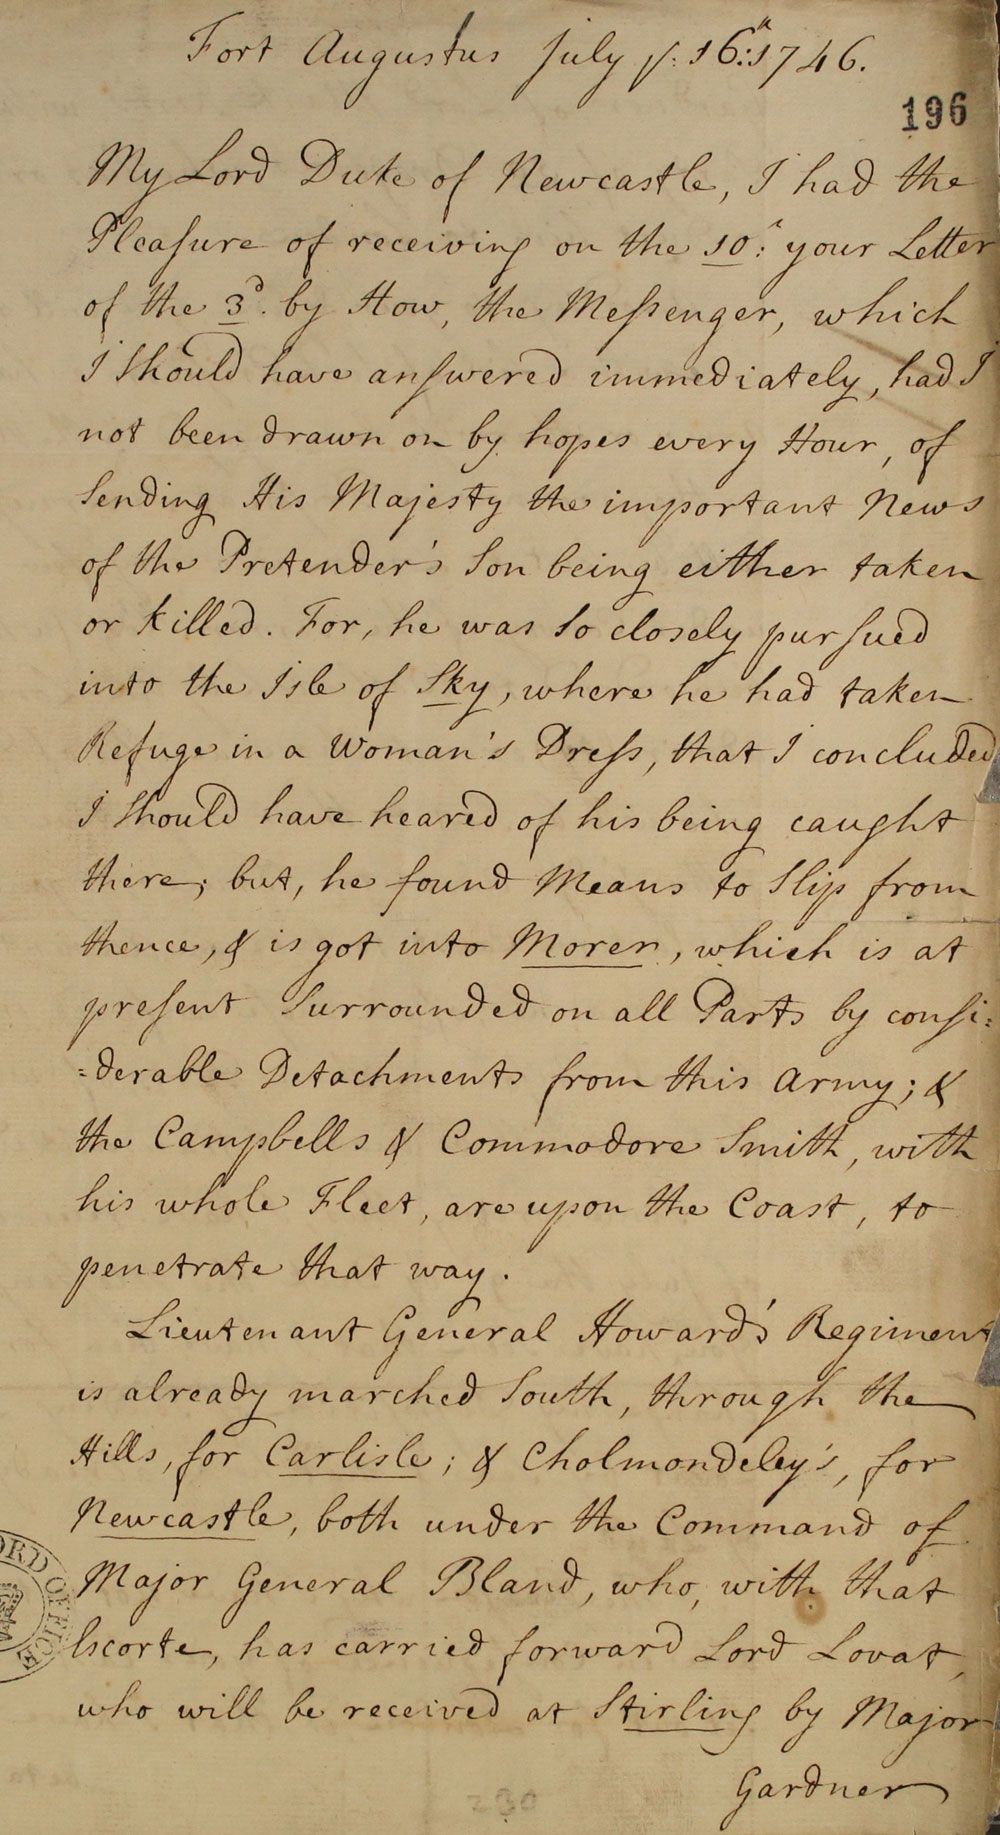 Fort Augustus July ye. 16th: 1746.
196
My Lord Duke of Newcastle, I had the
Pleasure of receiving on the 10th: your Letter
of the 3d. by How, the Messenger, which
I should have answered immediately, had I
not been drawn on by hopes every Hour, of
sending His Majesty the important News
of the Pretender's Son being either taken
or killed. For, he was so closely pursued
into the Isle of Sky, where he had taken
Refuge in a Woman's Dress, that I concluded
I should have heared of his being caught
there; but, he found Means to slip from
thence, & is got into Morer, which is at
present surrounded on all Parts by consi=
=derable Detachments from this Army; &
the Campbells & Commodore Smith, with
his whole Fleet, are upon the Coast, to
penetrate that way.
Lieutenant General Howard's Regiment
is already marched South, through the
Hills, for Carlisle; & Cholmondeley's, for
Newcastle, both under the Command of
Major General Bland, who, with that
Escorte, has carried forward Lord Lovat,
who will be received at Stirling by Major
Gardner
230
ORD OFFICE